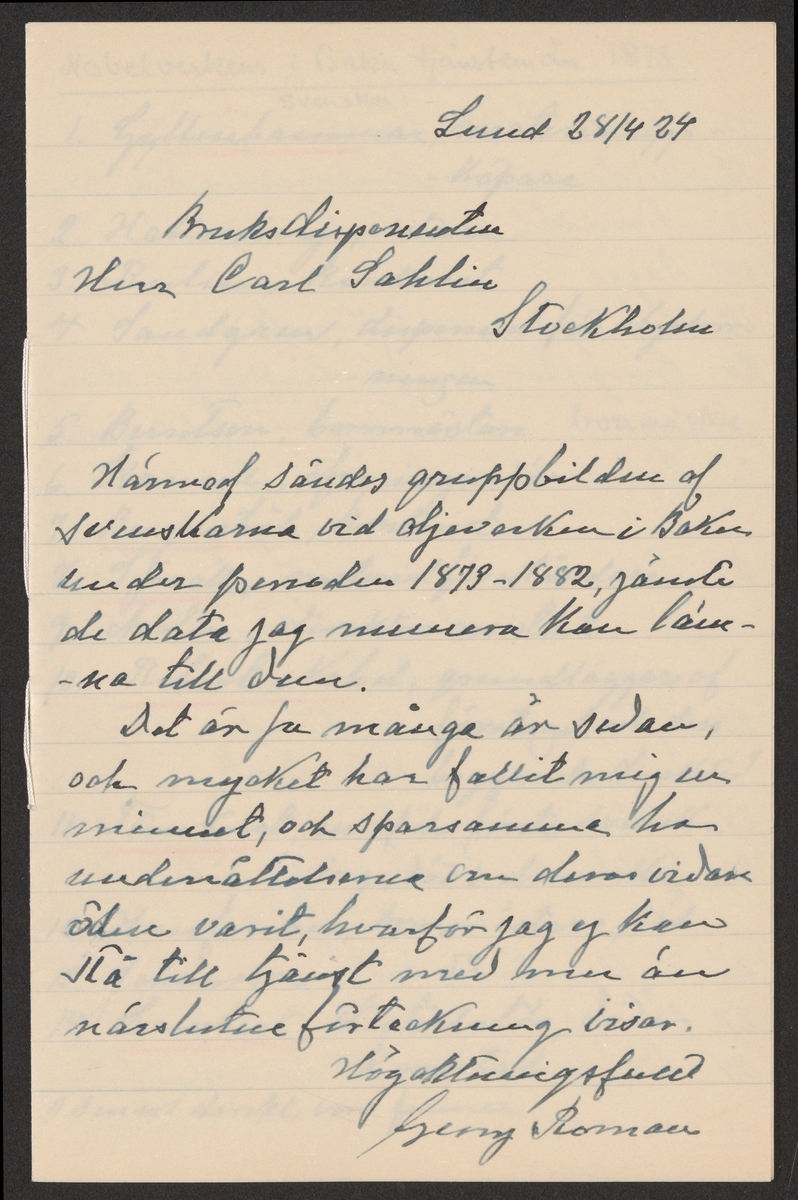 Lund 28/4 24
Bruksdisponenten
Herr Carl Sahlin
Stockholm
Härmed sändes gruppbilden af
svenskarna vid oljeverken i Baku
under perioden 1879-1882, jämte
de data jag numera kan läm-
-na till den.
Det är ju många år sedan,
och mycket har fallit mig ur
minnet, och sparsamma ha
underrättelserna om deras vidare
öden varit, hvarför jag ej kan
stå till tjänst med mer än
närslutne förteckning visar.
Högaktningsfullt
Georg Roman